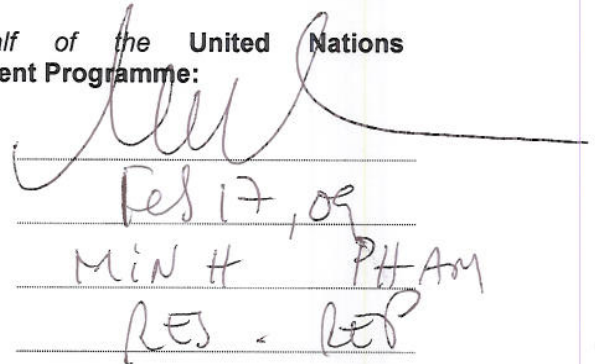 alf of the United Nations
ent Programme:
Feb 17, 09
MINH PHAM
RES. REP